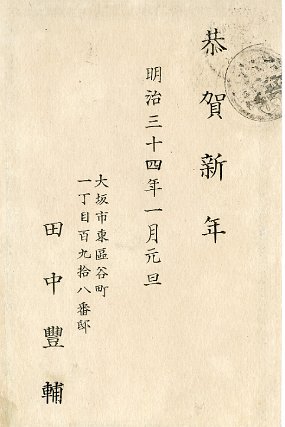 恭賀新年
明治三十四年一月元旦
大坂市東區谷町
一丁目百九拾八番邸
田中豐輔